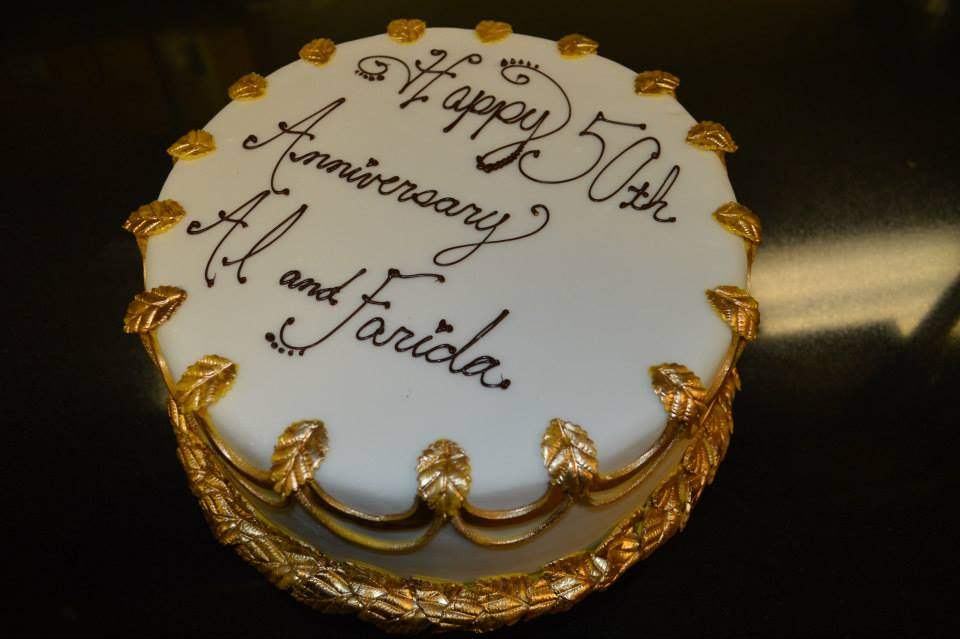 Happy 50th
Anniversary
Al and Farida